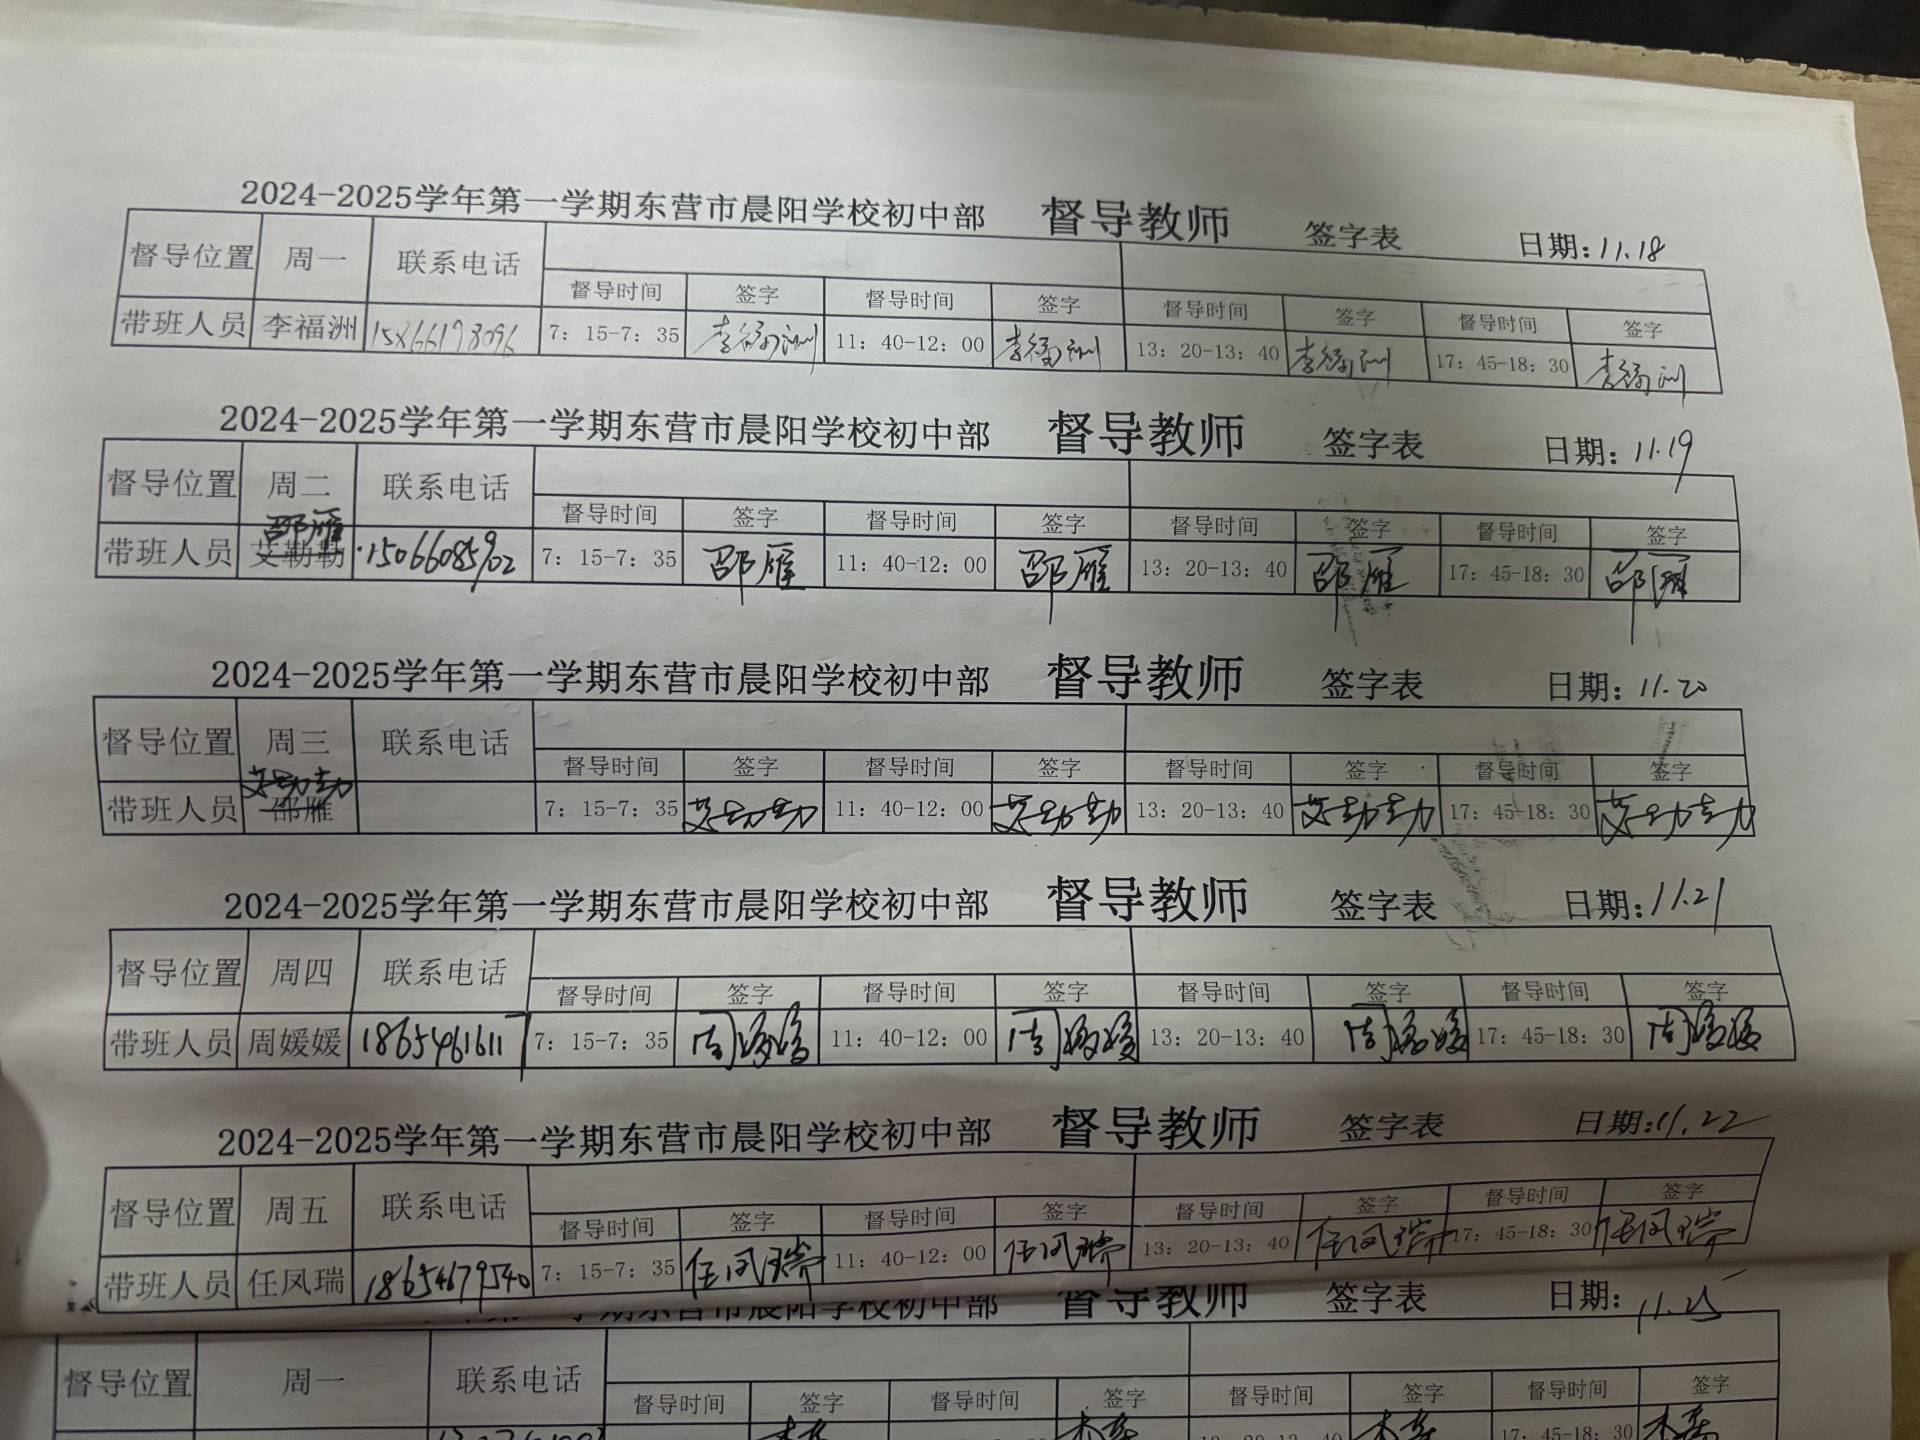 2024-2025学年第一学期东营市晨阳学校初中部 督导教师 签字表 日期:11.18
督导位置 周一 联系电话
督导时间 签字 督导时间 签字 督导时间 签字 督导时间 签字
带班人员 李福洲 15866198096 7：15-7：35 李福洲 11：40-12：00 李福洲 13：20-13：40 李福洲 17：45-18：30 李福洲
2024-2025学年第一学期东营市晨阳学校初中部 督导教师 签字表 日期:11.19
督导位置 周二 联系电话
督导时间 签字 督导时间 签字 督导时间 签字 督导时间 签字
邵雁
带班人员 艾勤勤 15066085902 7：15-7：35 邵雁 11：40-12：00 邵雁 13：20-13：40 邵雁 17：45-18：30 邵雁
2024-2025学年第一学期东营市晨阳学校初中部 督导教师 签字表 日期:11.20
督导位置 周三 联系电话
督导时间 签字 督导时间 签字 督导时间 签字 督导时间 签字
艾勤勤
带班人员 邵雁 7：15-7：35 艾勤勤 11：40-12：00 艾勤勤 13：20-13：40 艾勤勤 17：45-18：30 艾勤勤
2024-2025学年第一学期东营市晨阳学校初中部 督导教师 签字表 日期:11.21
督导位置 周四 联系电话
督导时间 签字 督导时间 签字 督导时间 签字 督导时间 签字
带班人员 周媛媛 18654616117 7：15-7：35 周媛媛 11：40-12：00 周媛媛 13：20-13：40 周媛媛 17：45-18：30 周媛媛
2024-2025学年第一学期东营市晨阳学校初中部 督导教师 签字表 日期:11.22
督导位置 周五 联系电话
督导时间 签字 督导时间 签字 督导时间 签字 督导时间 签字
带班人员 任凤瑞 18654679540 7：15-7：35 任凤瑞 11：40-12：00 任凤瑞 13：20-13：40 任凤瑞 17：45-18：30 任凤瑞
学期东营市晨阳学校初中部 督导教师 签字表 日期:11.25
督导位置 周一 联系电话
督导时间 签字 督导时间 签字 督导时间 签字 督导时间 签字
17：45-18：30